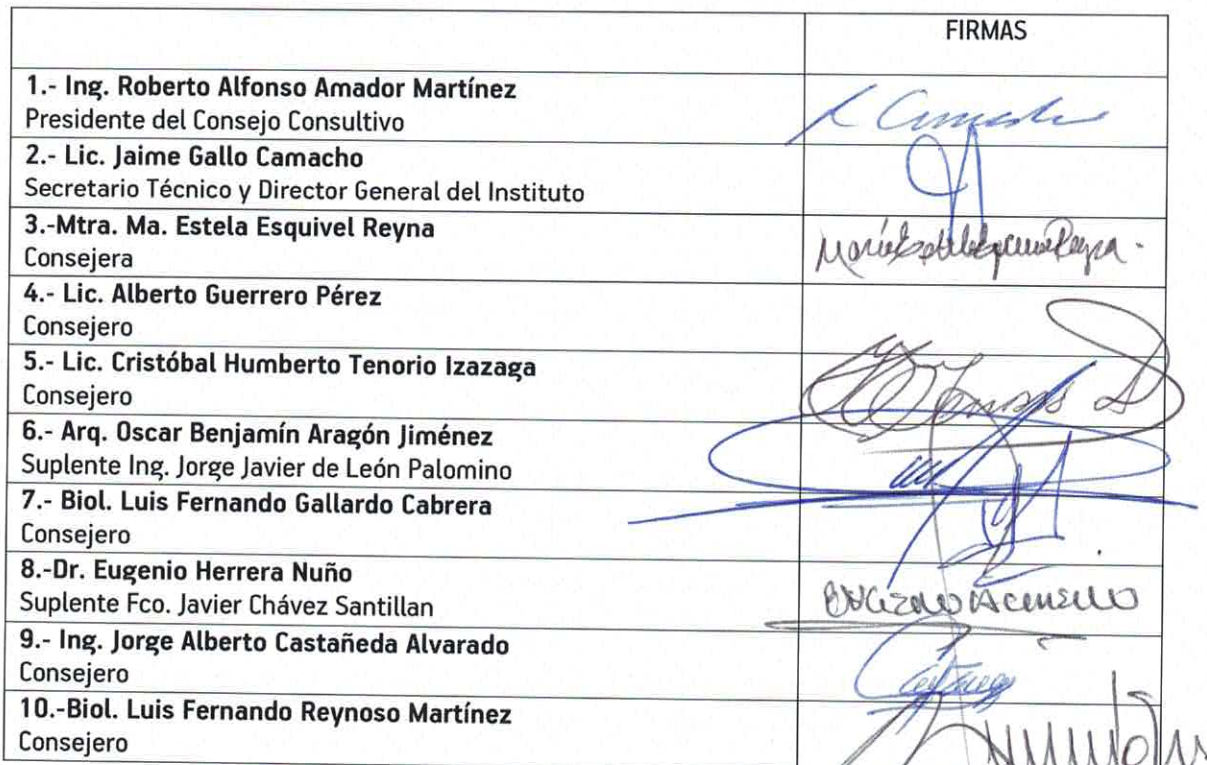 FIRMAS
1.- Ing. Roberto Alfonso Amador Martínez
Presidente del Consejo Consultivo
2.- Lic. Jaime Gallo Camacho
Secretario Técnico y Director General del Instituto
3.-Mtra. Ma. Estela Esquivel Reyna
Consejera
4.- Lic. Alberto Guerrero Pérez
Consejero
5.- Lic. Cristóbal Humberto Tenorio Izazaga
Consejero
6.- Arq. Oscar Benjamín Aragón Jiménez
Suplente Ing. Jorge Javier de León Palomino
7.- Biol. Luis Fernando Gallardo Cabrera
Consejero
8.-Dr. Eugenio Herrera Nuño
Suplente Fco. Javier Chávez Santillan
9.- Ing. Jorge Alberto Castañeda Alvarado
Consejero
10.-Biol. Luis Fernando Reynoso Martínez
Consejero